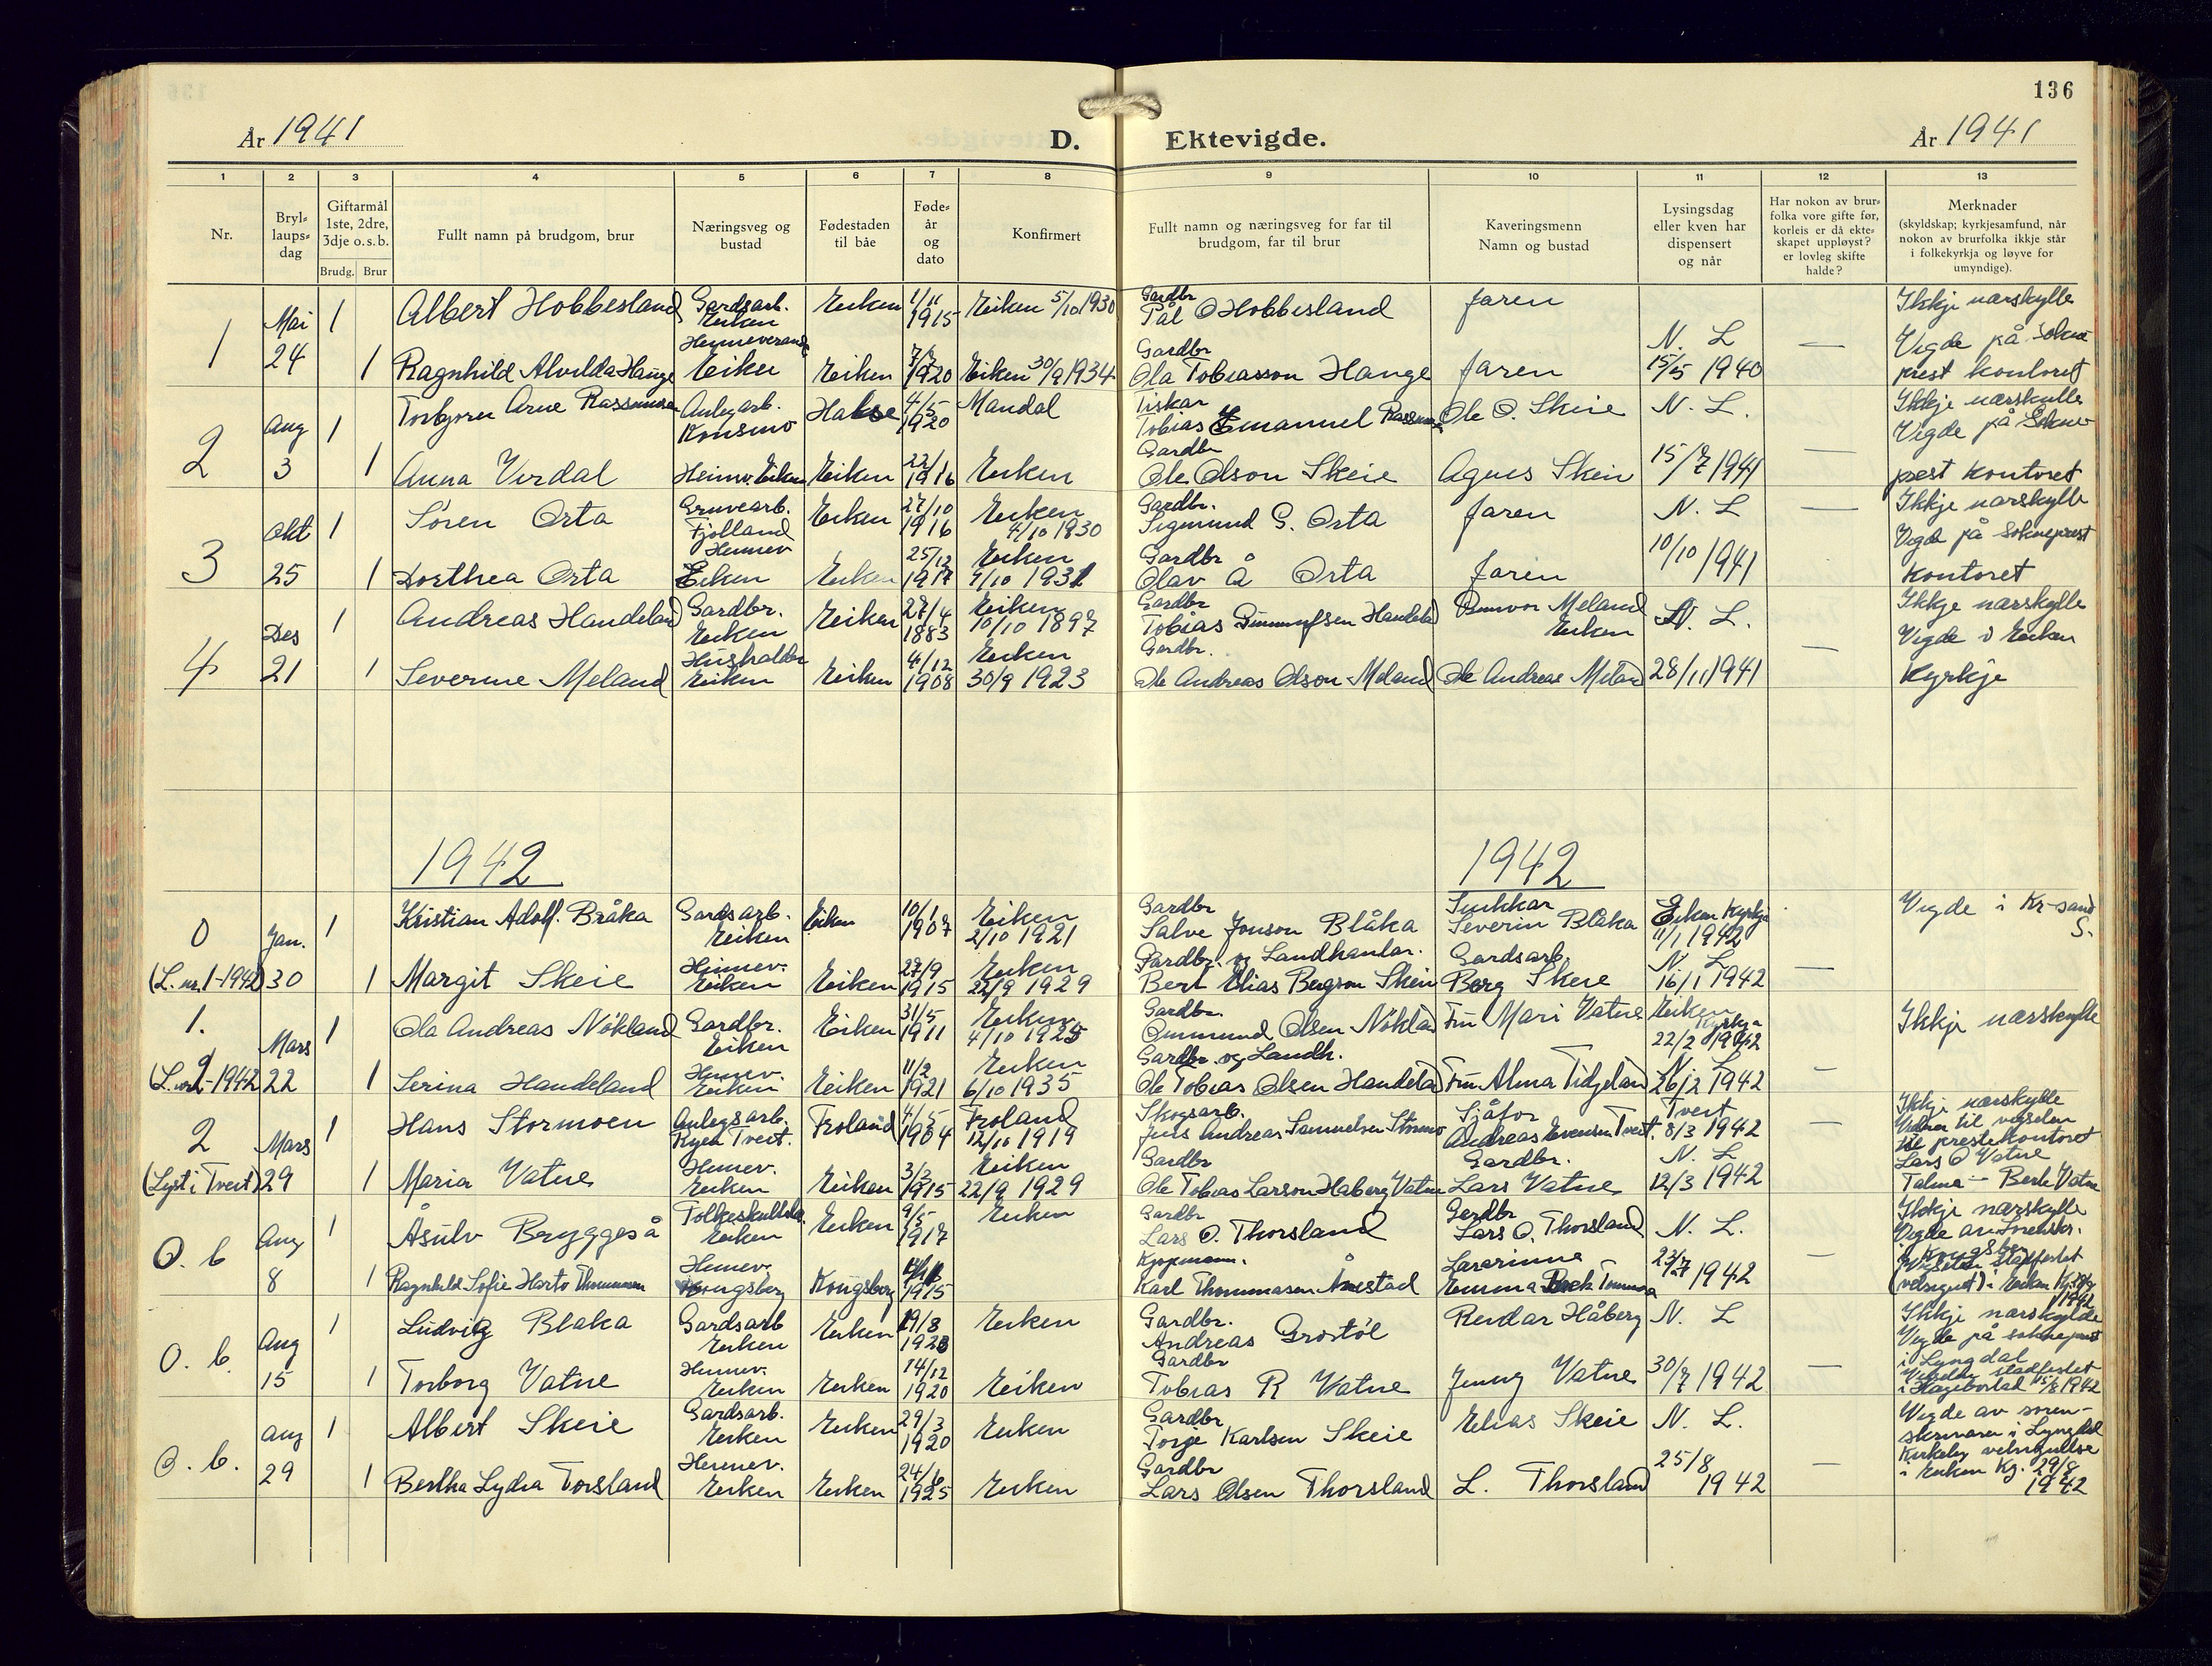 136
År 1941
D. Ektevigde.
År 1941
1 2 3 4 5 6 7 8 9 10 11 12 13
Nr.
Bryl-
laups-
dag
Giftarmål
1ste, 2dre,
3dje o.s.b.
Brudg. Brur
Fullt namn på brudgom, brur
Næringsveg og
bustad
Fødestaden
til båe
Føde-
år
og
dato
Konfirmert
Fullt namn og næringsveg for far til
brudgom, far til brur
Kaveringsmenn
Namn og bustad
Lysingsdag
eller kven har
dispensert
og når
Har nokon av brur-
folka vore gifte før,
korleis er då ekte-
skapet uppløyst?
er lovleg skifte
halde?
Merknader
(skyldskap; kyrkjesamfund, når
nokon av brurfolka ikkje står
i folkekyrkja og løyve for
umyndige).
1 Mai 24
1 Albert Hobbesland Gardsarb. Eiken Eiken 1/11 1915 Eiken 5/10 1930 Gardbr Pål O Hobbesland faren
1 Ragnhild Alvilda Hauge Heimeverande Eiken Eiken 7/7 1920 Eiken 30/9 1934 Gardbr Ola Tobiasson Hauge faren N. L 15/5 1940 —
Ikkje nærskylle
Vigde på Sokne
prest kontoret
2 Aug 3
1 Torbjørn Arne Rassmusen Anlegarb. Konsmo Halse 4/5 1920 Mandal Fiskar Tobias Emanuel Ole O. Skeie N. L.
1 Anna Virdal Heimv. Eiken Eiken 22/1 1916 Eiken Gardbr Ole Olson Skeie Agnes Skeie 15/7 1941 —
Ikkje nærskylle
Vigde på Sokne
prest kontoret
3 Okt 25
1 Søren Orta Gruvearb. Fjotland Eiken 27/10 1916 Eiken 4/10 1930 Gardbr. Sigmund S. Orta faren N. L —
1 Dorthea Orta Heimev Eiken Eiken 25/12 1917 Eiken 4/10 1931 Gardbr Olav Å Orta faren 10/10 1941
Ikkje nærskylle
Vigde på Sokneprest
kontoret
4 Des 21
1 Andreas Handeland Gardbr. Eiken Eiken 27/4 1883 Eiken 10/10 1897 Gardbr Tobias Handeland Gunvor Meland Eiken N. L.
1 Severine Meland Husholder Eiken Eiken 4/12 1908 Eiken 30/9 1923 Gardbr. Ole Andreas Olson Meland Ole Andreas Meland 28/11 1941 —
Ikkje nærskylle
Vigde i Eiken
Kyrkje
1942
1942
0 (L. nr. 1-1942) Jan. 30
1 Kristian Adolf. Bråka Gardsarb. Eiken Eiken 10/1 1907 Eiken 2/10 1921 Gardbr Salve Jonson Blåka Snikkar Severin Blåka Eiken Kyrkje 11/1 1942
1 Margit Skeie Heimev. Eiken Eiken 27/9 1915 Eiken 22/9 1929 Gardbr. og Landhanlar. Bert Elias Bergson Skeie Gardsarb. Berg Skeie N. L 16/1 1942 —
Vigde i Kr-sand
S.
1. (L. nr. 2-1942) Mars 22
1 Ola Andreas Nökland Gardbr. Eiken Eiken 31/5 1911 Eiken 4/10 1925 Gardbr. Gunmund Olsen Nökland Fru Mari Vatne Eiken Kyrkja 22/2 1942
1 Serina Handeland Heimev. Eiken Eiken 11/2 1921 Eiken 6/10 1935 Gardbr og Landh. Ole Tobias Olsen Handeland Fru Alma Tidjeland N. L 26/2 1942 —
Ikkje nærskylle
2 (Lyst i Tveit) Mars 29
1 Hans Stormoen Anlegsarb. Ryen Tveit. Froland 4/5 1904 Froland 12/10 1919 Skogsarb. Jens Andreas Samuelsen Stormo Sjåfør Andreas Evensen Tveit. Tveit 8/3 1942 —
1 Maria Vatne Heimev. Eiken Eiken 3/3 1915 Eiken 22/9 1929 Gardbr Ole Tobias Larson Haberg Vatne Gardbr. Lars Vatne N. L 12/3 1942
Ikkje nærskylle
Vidner til vigselen
på prestekontoret
Lars O Vatne
Talma - Berte Vatne
O. b Aug 8
1 Åsulv Bryggeså Folkeskulelær. Eiken Eiken 9/5 1917 Eiken Gardbr Lars O. Thorsland Gardbr Lars O. Thorsland N. L.
1 Ragnhild Sofie Harto Thommasen Heimev. Kongsberg Kongsberg 1915 Kjøpmann. Karl Thommasen Lærerinne Emma 23/7 1942 —
Ikkje nærskylle
Vigde av Sorenskr.
i Kongsberg
Vigselen stadfestet
(velsignet) i Eiken Kyrkje
1942
O. b. Aug 15
1 Ludvig Blaka Gardsarb Eiken Eiken 19/8 1923 Eiken Gardbr. Andreas Grostöl Reidar Håberg N. L
1 Torborg Vatne Heimev. Eiken Eiken 14/12 1920 Eiken Gardbr Tobias R Vatne Jenny Vatne 30/7 1942 —
Ikkje nærskylde
Vigde på sokneprest
i Lyngdal
stadfestet
i Hægebostad 15/8 1942
O. b. Aug 29
1 Albert Skeie Gardsarb. Eiken Eiken 29/3 1920 Eiken Gardbr. Torje Karlsen Skeie Elias Skeie N. L.
1 Bertha Lydia Torsland Heimev. Eiken Eiken 24/6 1925 Eiken Gardbr Lars Olsen Thorsland L. Thorsland 25/8 1942 —
Vigde av soren-
skrivaren i Lyngdal
Kirkeleg velsignelse
i Eiken Kj. 29/8
1942